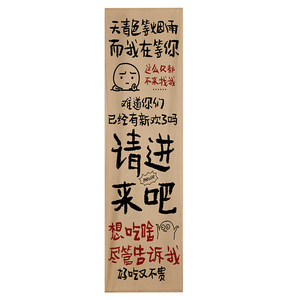 天青色等烟雨
而我在等你
这么久都
不来找我……
难道你们
已经有新欢了吗
请进
来吧
想吃啥
尽管告诉我
好吃又不贵